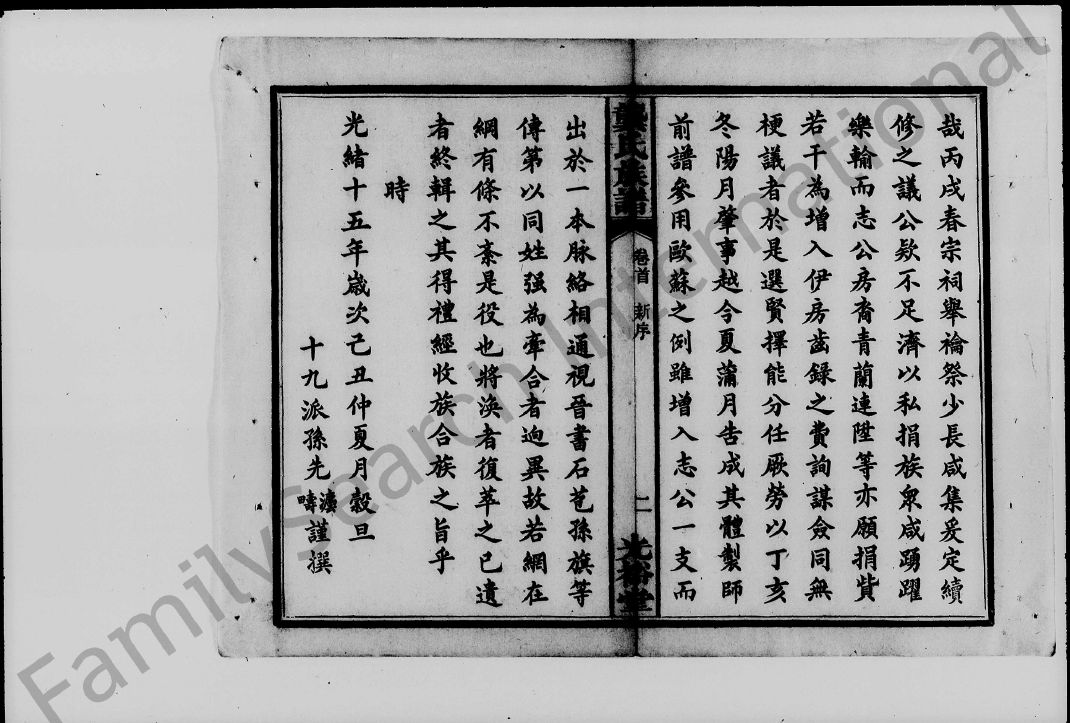 哉丙戌春宗祠舉禴祭少長咸集爰定續
修之議公欵不足濟以私捐族衆咸踴躍
樂輸而志公房裔青蘭連陞等亦願捐貲
若干為增入伊房齒錄之費詢謀僉同無
梗議者於是選賢擇能分任厥勞以丁亥
冬陽月肇事越今夏蒲月告成其體製師
前譜參用歐蘇之例雖增入志公一支而
龔氏族譜
卷首 新序
二
光裕堂
出於一本脉絡相通視晉書石苞孫旗等
傳第以同姓强為牽合者逈異故若網在
綱有條不紊是役也將渙者復萃之已遺
者終輯之其得禮經收族合族之旨乎
時
光緒十五年歲次己丑仲夏月穀旦
十九派孫先 疇謹撰
FamilySearch International